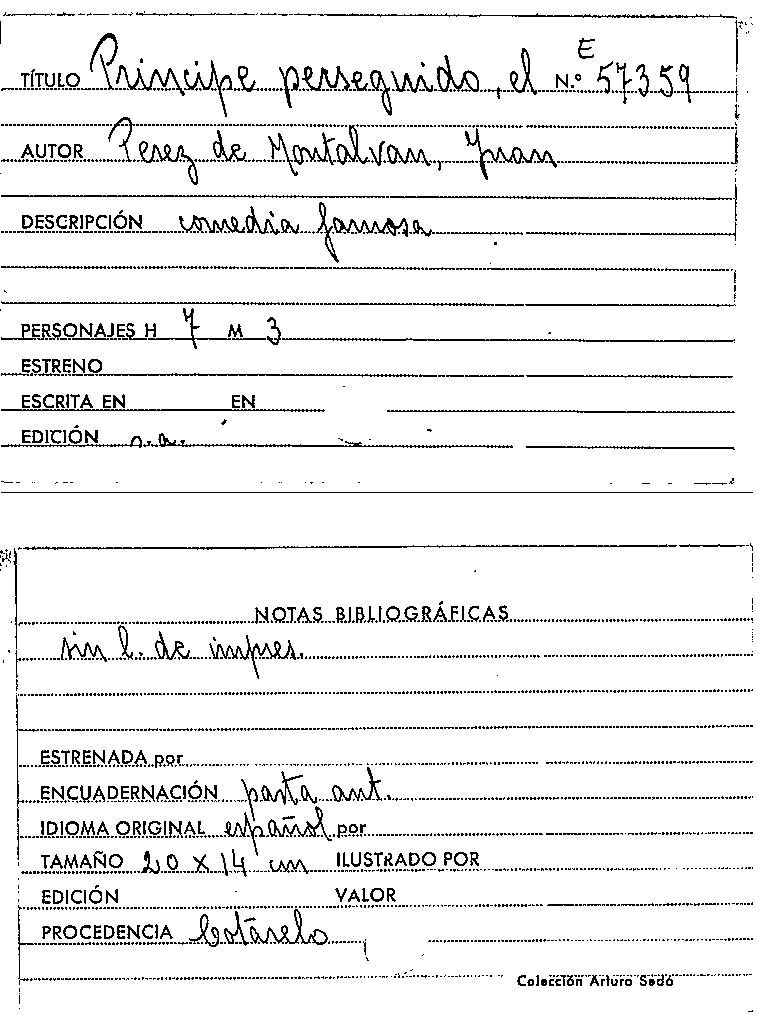 E
TÍTULO Principe perseguido, el N.º 57359
AUTOR Perez de Montalvan, Juan
DESCRIPCIÓN comedia famosa
PERSONAJES H 7 M 3
ESTRENO
ESCRITA EN EN
EDICIÓN s.a.
NOTAS BIBLIOGRÁFICAS
sin l. de impres.
ESTRENADA por
ENCUADERNACIÓN pasta ant.
IDIOMA ORIGINAL español por
TAMAÑO 20 x 14 cm ILUSTRADO POR
EDICIÓN VALOR
PROCEDENCIA Cotarelo
Colección Arturo Sedó